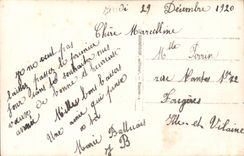 29 Décembre 1920
Chère Marcelline
Je ne veut pas
laisser passer le premier
jour sans te souhaiter mes
vœux de bonne et heureuse
année
Milles bons baisers
Une amie qui pense
à toi
Marie
B
Melle
rue Nantes No 22
Fougères
Ille et Vilaine